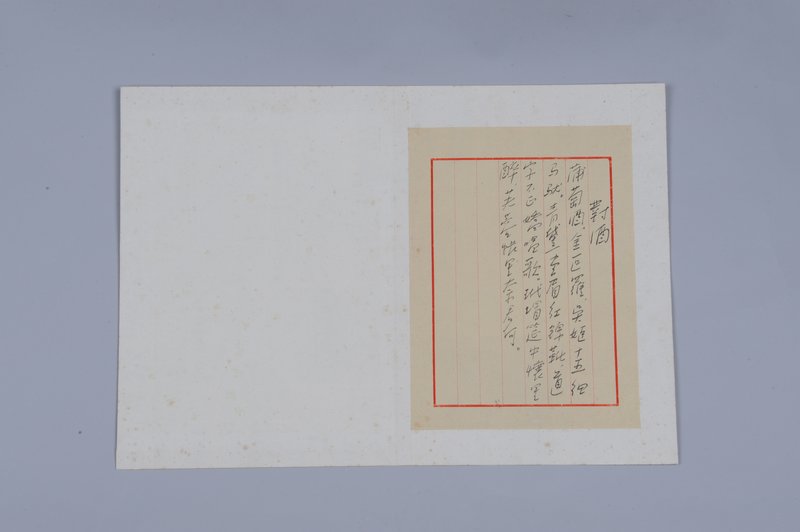 對酒
蒲萄酒、金叵羅、吳姬十五細
馬馱。青黛畫眉紅錦靴、道
字不正嬌唱歌、玳瑁筵中懷里
醉、芙蓉帳里奈君何。